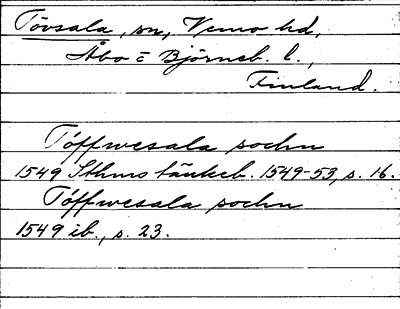 Tövsala, sn, Vemo hd,
Åbo o Björneb. l.,
Finland.
Töffwesala sochn
1549 Sthms tänkeb. 1549-53, s. 16.
Töffwesala sochn
1549 ib., s. 23.